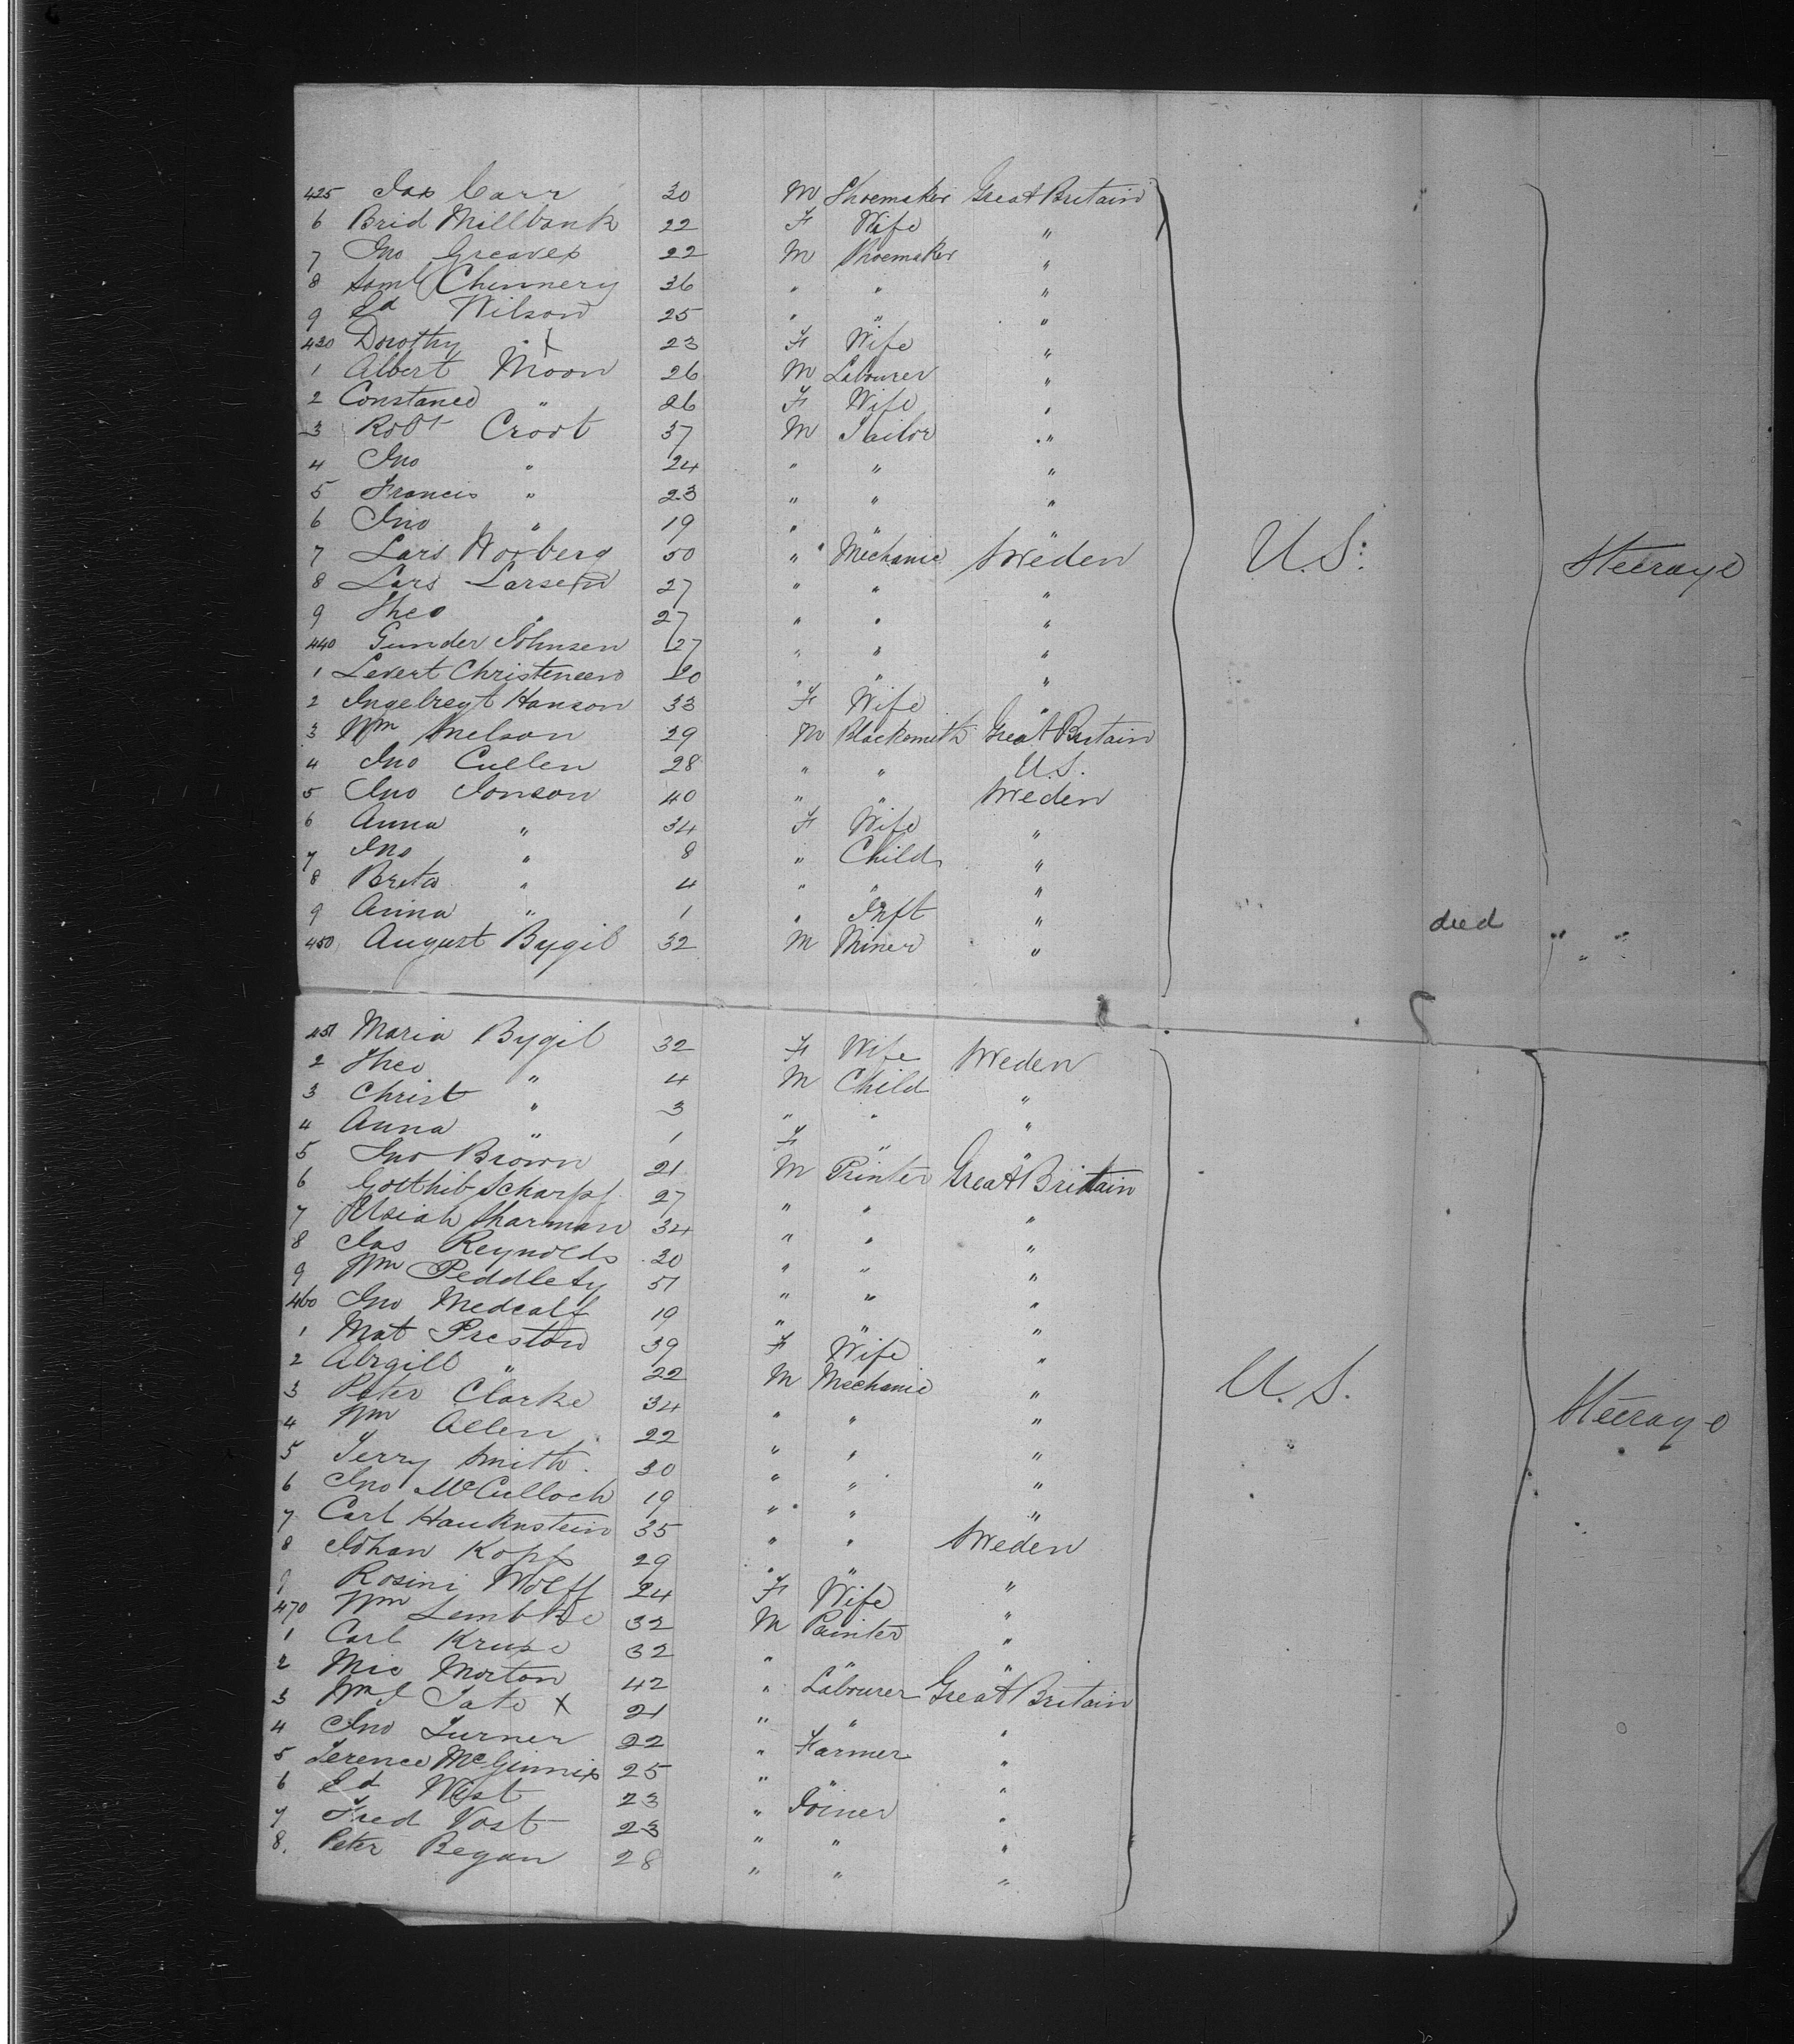 425 Jas Carr 30 M Shoemaker Great Britain
6 Brid Millbank 22 F Wife "
7 Jno Greaves 22 M Shoemaker "
8 Saml Chinnery 36 " " "
9 Ed Wilson 25 " " "
430 Dorothy X 23 F Wife "
1 Albert Moon 26 M Labourer "
2 Constance " 26 F Wife "
3 Robt Croot 37 M Tailor "
4 Jno " 24 " " "
5 Francis " 23 " " "
6 Jno " 19 " " "
7 Lars Norberg 50 " Mechanic Sweden U.S. Steerage
8 Lars Larsen 27 " " "
9 Theo " 27 " " "
440 Gunder Johnsen 27 " " "
1 Levert Christensen 20 " " "
2 Ingelregt Hanson 33 F Wife "
3 Wm Nelson 29 M Blacksmith Great Britain
4 Jno Cullen 28 " " U.S.
5 Jno Jonson 40 " " Sweden
6 Anna " 34 F Wife "
7 Jno " 8 " Child "
8 Breta " 4 " " "
9 Anna " 1 " Inft " died " "
450 August Bygil 32 M Miner " " "
451 Maria Bygil 32 F Wife Sweden
2 Theo " 4 M Child "
3 Christ " 3 " " "
4 Anna " 1 F " "
5 Jno Brown 21 M Printer Great Britain
6 Gotthib Scharpf 27 " " "
7 Sharman 34 " " "
8 Jas Reynolds 30 " " "
9 Wm Peddlety 51 " " "
460 Jno Medcalf 19 " " "
1 Mat Preston 39 F Wife "
2 Abgill " 22 M Mechanic "
3 Peter Clarke 34 " " " U.S. Steerage
4 Wm Allen 22 " " "
5 Terry Smith 30 " " "
6 Jno McCulloch 19 " " "
7 Carl Hauknstein 35 " " Sweden
8 Johan Kopf 29 " " "
9 Rosini Wolff 24 F Wife "
470 Wm Lembke 32 M Painter "
1 Carl Kruse 32 " " "
2 Mic Morton 42 " Labourer Great Britain
3 Wm J Tate X 21 " " "
4 Jno Turner 22 " Farmer "
5 Terence McGinnis 25 " " "
6 Ed West 23 " Joiner "
7 Fred Vost 23 " " "
8. Peter Began 28 " " "